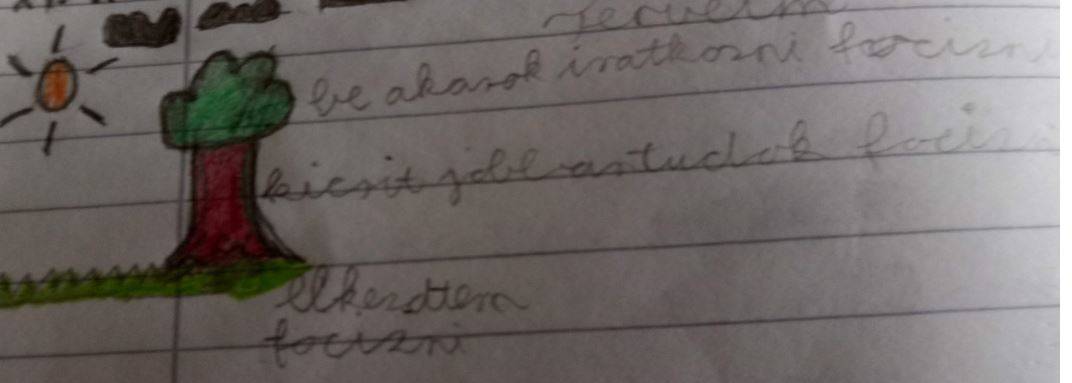 Terveim
be akarok iratkozni focizni
kicsit jobban tudok focizni
elkezdtem
focizni